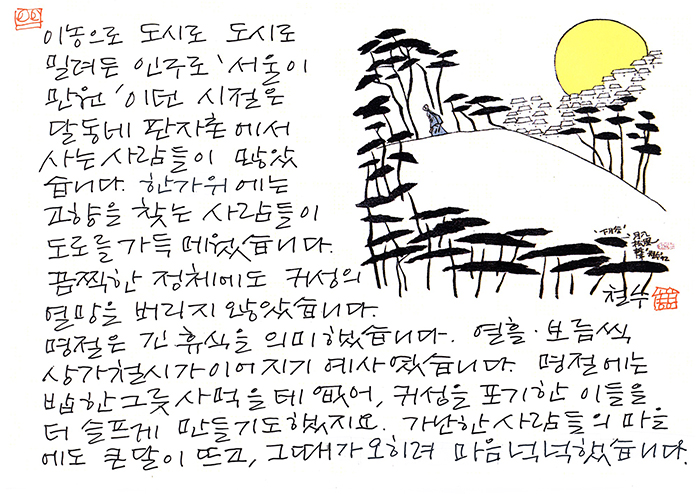 이농으로 도시로 도시로
밀려든 인구로 '서울이
만원' 이던 시절은
달동네 판자촌에서
사는 사람들이 많았
습니다. 한가위에는
고향을 찾는 사람들이
도로를 가득 메웠습니다.
끔찍한 정체에도 귀성의
열망을 버리지 않았습니다.
명절은 긴 휴식을 의미했습니다. 열흘·보름씩
상가철시가 이어지기 예사였습니다. 명절에는
밥 한그릇 사먹을 데 없어, 귀성을 포기한 이들을
더 슬프게 만들기도 했지요. 가난한 사람들의 마을
에도 큰 달이 뜨고, 그때가 오히려 마음 넉넉했습니다.
철수